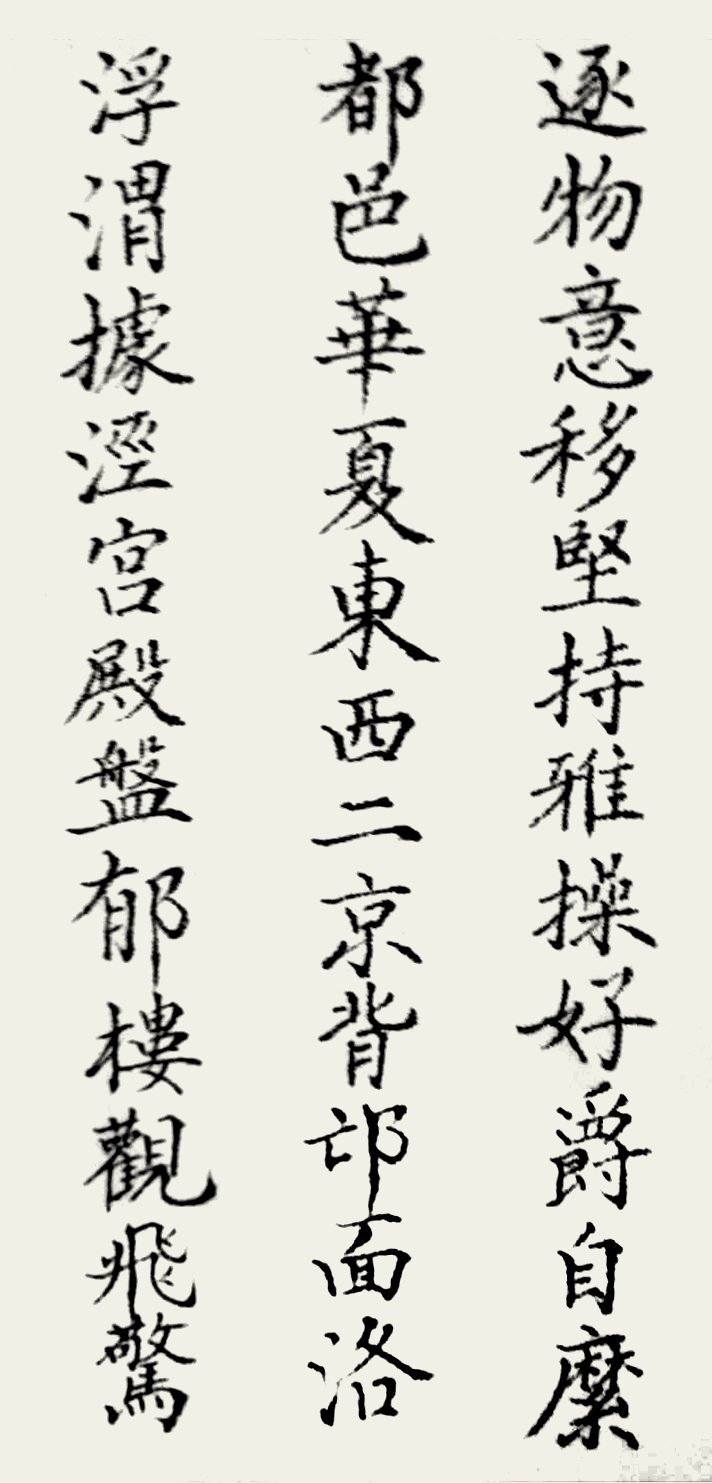 逐物意移堅持雅操好爵自縻
都邑華夏東西二京背邙面洛
浮渭據涇宮殿盤郁樓觀飛驚